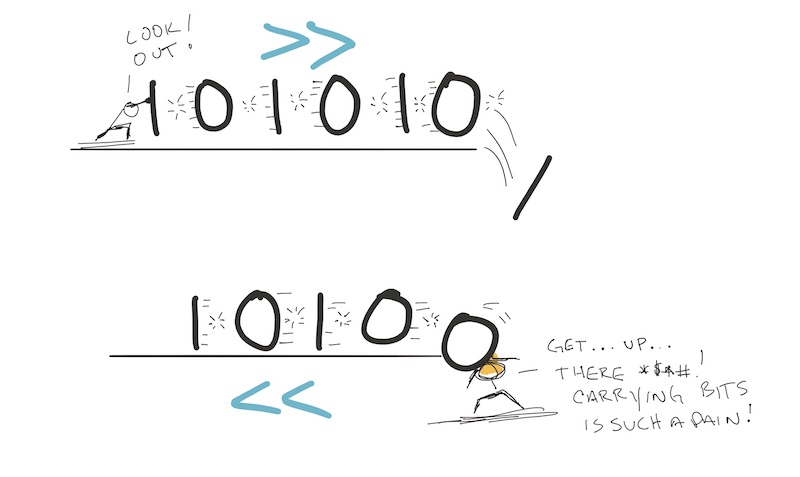 LOOK!
OUT!
>>
1 0 1 0 1 0
1
1 0 1 0 0
GET... UP...
THERE *$*#.!
CARRYING BITS
IS SUCH A PAIN!
<<